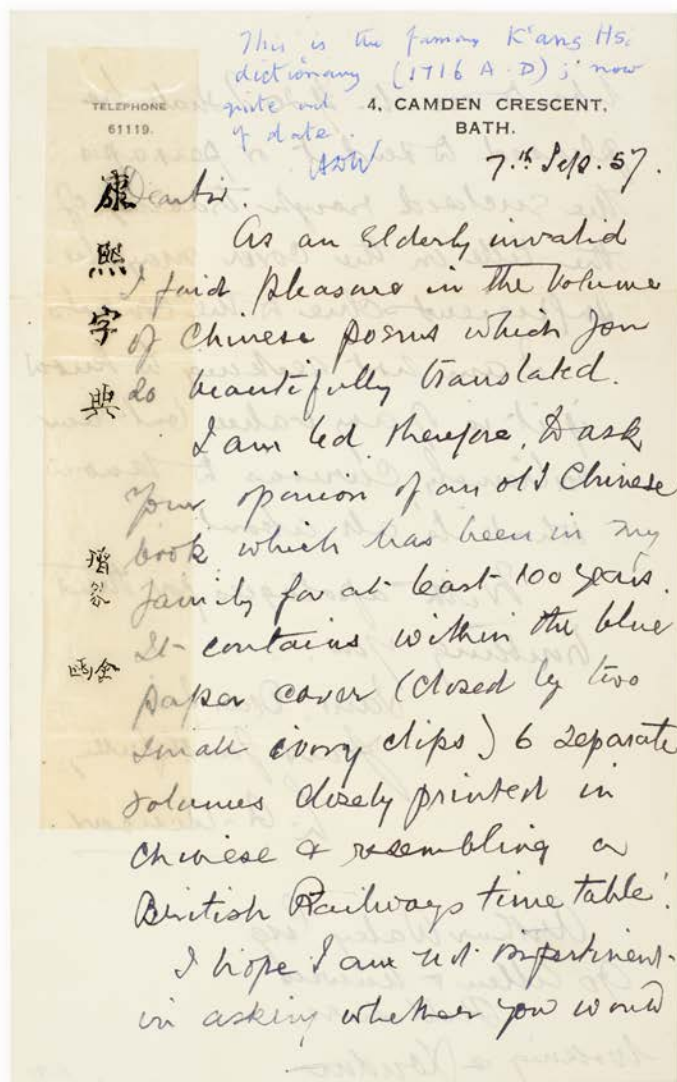 This is the famous K'ang Hsi
dictionary (1716 A.D); now
quite out
of date.
ADW
TELEPHONE
61119.
4, CAMDEN CRESCENT,
BATH.
7.th Sep. 57.
康熙字典
Dear Sir.
As an elderly invalid
I find pleasure in the volume
of Chinese poems which you
so beautifully translated.
I am led, therefore, to ask
your opinion of an old Chinese
book which has been in my
family for at least 100 years.
It contains within the blue
paper cover (closed by two
small ivory clips) 6 separate
volumes closely printed in
Chinese & resembling a
British Railways time table!
I hope I am not impertinent
in asking whether you would